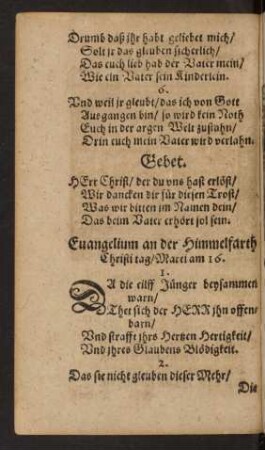 Drumb daß jhr habt geliebet mich/
Solt jr das gleuben sicherlich/
Das euch lieb hab der Vater mein/
Wie ein Vater sein Kinderlein.
6.
Vnd weil jr gleubt/ das ich von Gott
Ausgangen bin/ so wird kein Noth
Euch in der argen Welt zustahn/
Drin euch mein Vater wird verlahn.
Gebet.
HErr Christ/ der du vns hast erlöst/
Wir dancken dir für diesen Trost/
Was wir bitten im Namen dein/
Das beim Vater erhört sol sein.
Euangelium an der Himmelfarth
Christi tag/ Marci am 16.
1.
DA die eilff Jünger beysammen
warn/
Thet sich der HERR jhn offen-
barn/
Vnd strafft jhrs Hertzen Hertigkeit/
Vnd jhres Glaubens Blödigkeit.
2.
Das sie nicht gleuben dieser Mehr/
Die